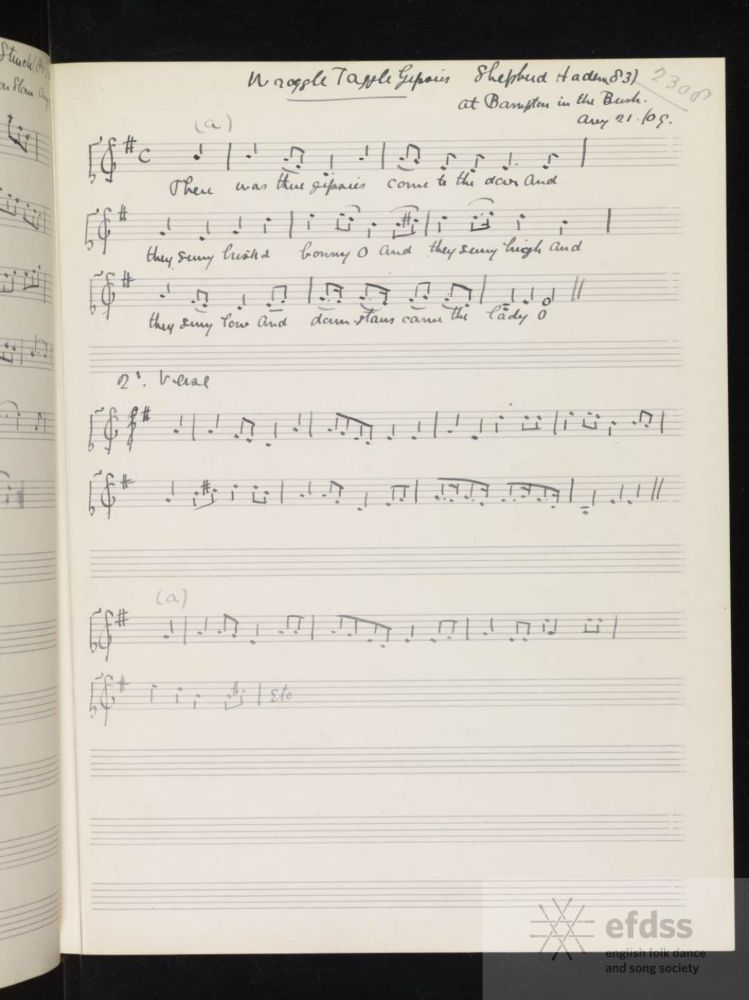 Wraggle Taggle Gipsies Shepherd Haden (83) 2308
at Bampton in the Bush.
Aug 21. /09.
(a)
C
There was three gipsies come to the door And
they sung brisk & bonny O And they sung high And
they sung low And down-stairs came the lady O
2d. Verse
(a)
Etc
efdss
english folk dance
and song society